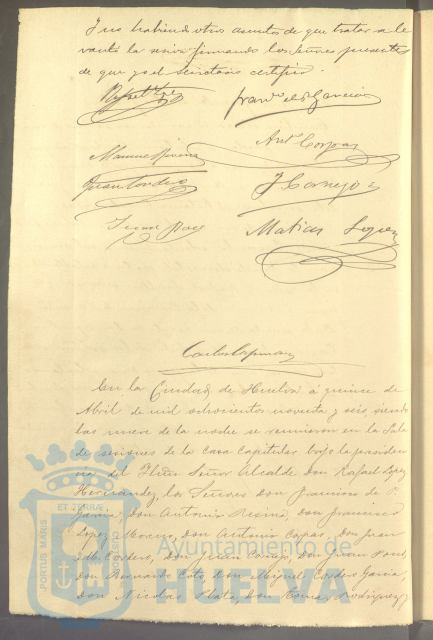 Y no habiendo otro asuntos de que tratar se le
vantó la sesion firmando los Señores presentes
de que yo el Secretario certifico.
Rafael Lopez
Franco de P. Garcia
Anto Corpas
Manuel
Juan Cordero
J Conejo
Juan Pons
Matias Lopez
Carlos
En la Ciudad de Huelva á quince de
Abril de mil ochocientos noventa y seis, siendo
las nueve de la noche se reunieron en la Sala
de sesiones de la Casa Capitular bajo la presiden
cia del Iltmo Señor Alcalde Don Rafael Lopez
Hernandez, los Señores Don Francisco de P.
Garcia, Don Antonio Resina, Don Francisco
Lopez Moreno, Don Antonio Corpas, Don Juan
M. Cordero, Don Conejo, Don Juan Pons,
Don Bernardo Coto, Don Miguel Cordero Garcia,
Don Nicolas Plata, Don Tomas Rodriguez y
ET TERRAE
PORTUS MARIS
CUSTODIA
Ayuntamiento de
HUELVA